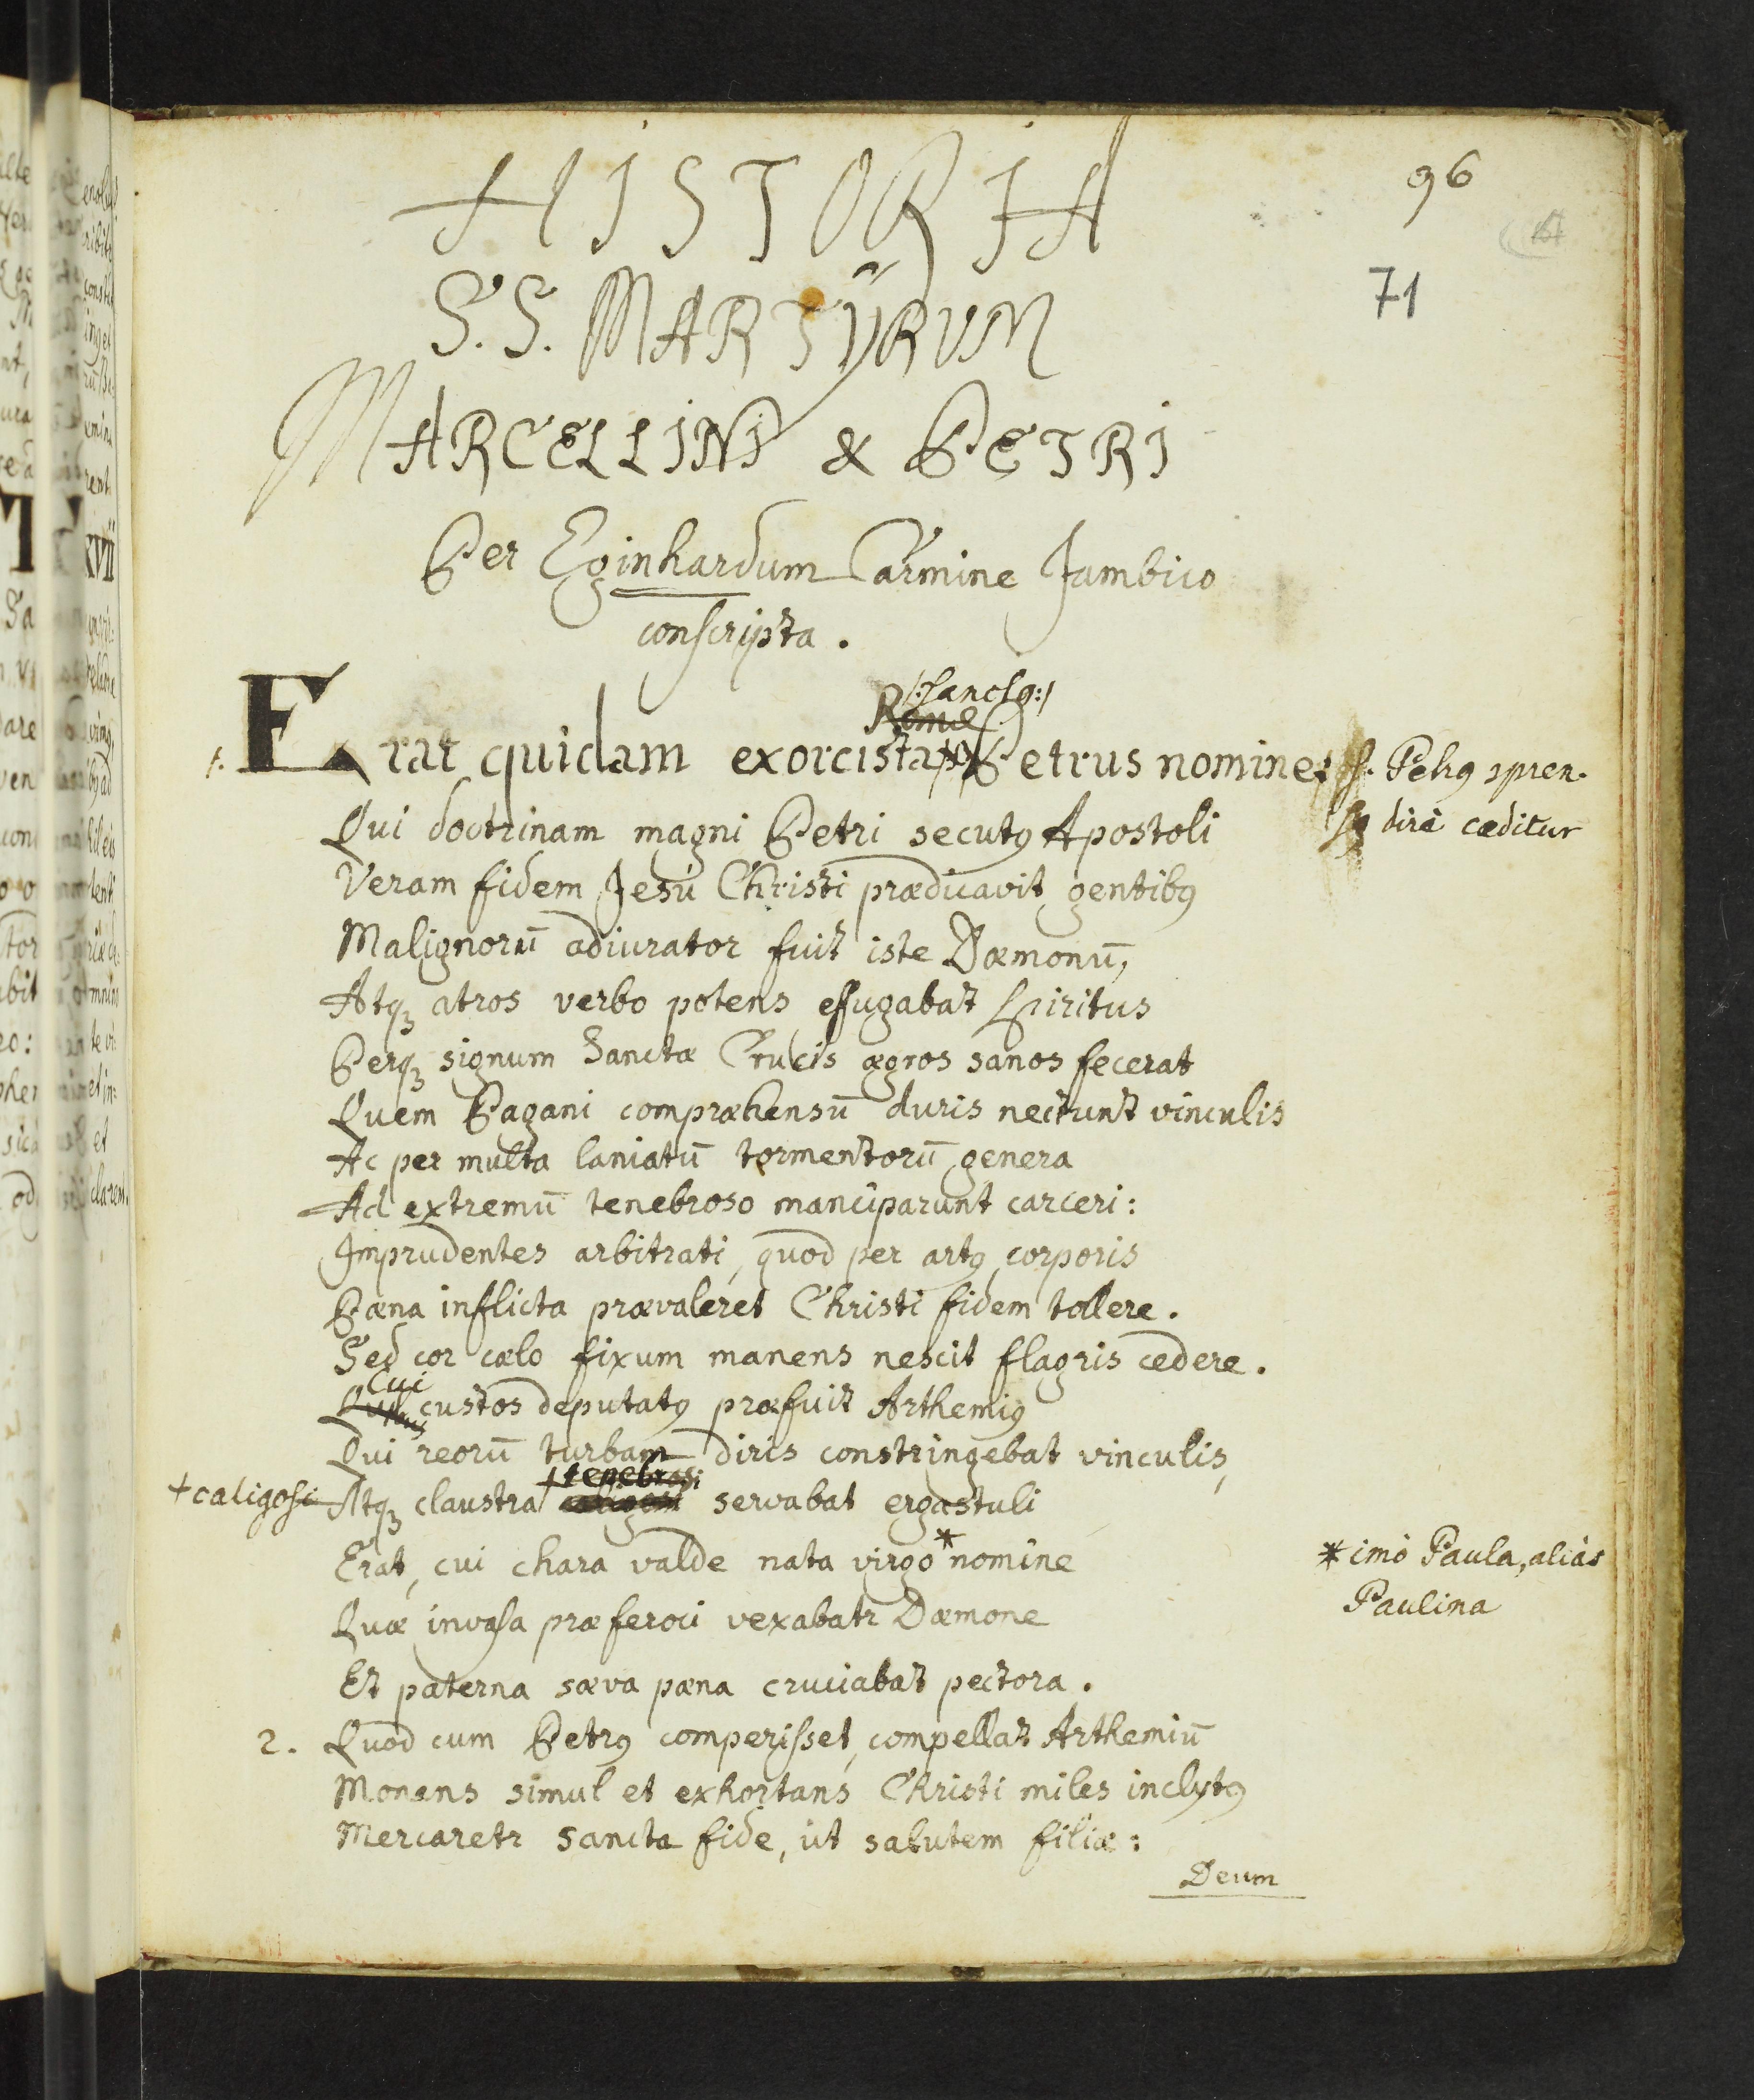 96
71
HISTORIA
S.S. MARTÿRVM
MARCELLINI & PETRI
Per Eginhardum Carmine Jambico
conscripta.
/:sanctꝯ:/
Romæ
1. Erat quidam exorcista Petrus nomine;
S. Petrꝯ
dirè cæditur
Qui doctrinam magni Petri secutꝯ Apostoli
Veram fidem Jesu Christi prædicavit gentibꝯ
Malignorū adiurator fuit iste Dæmonū,
Atqꝫ atros verbo potens effugabat spiritus
Perqꝫ signum Sanctæ Crucis ægros sanos fecerat
Quem Pagani compræhensū duris nectunt vinculis
Ac per multa laniatū tormentorū genera
Ad extremū tenebroso manciparunt carceri:
Imprudentes arbitrati, quod per artꝯ corporis
Pæna inflicta prævaleret Christi fidem tollere.
Sed cor cælo fixum manens nescit flagris cedere.
Cui
custos deputatꝯ præfuit Arthemiꝯ
Qui reorū turbam diris constringebat vinculis,
+tenebrosi
+caligosi Atqꝫ claustra servabat ergastuli
Erat, cui chara valde nata virgo *nomine
*imò Paula, aliàs
Paulina
Quæ invasa præferoci vexabatr Dæmone
Et paterna sæva pæna cruciabat pectora.
2. Quod cum Petrꝯ comperisset, compellat Arthemiū
Monens simul et exhortans Christi miles inclytꝯ
Mercaretr sancta fide, ut salutem filiæ:
Deum